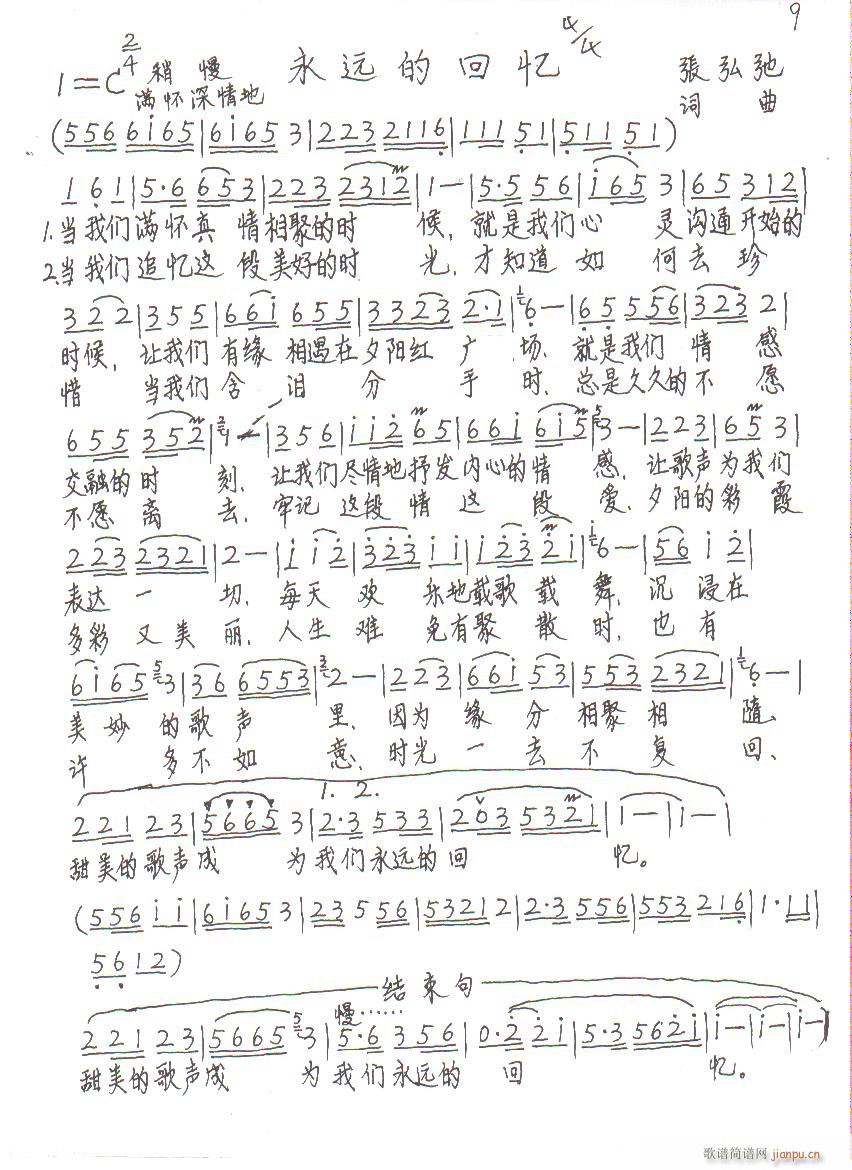 9
1=C 2/4 稍慢 永远的回忆 4/4 張弘弛
满怀深情地 词 曲
(556 6i65|6i65 3|223 2116|111 51|511 51)
1 61|5·6 653|223 2312|1-|5·5 56|i65 3|65 312|
1.当我们满怀真 情相聚的时 候,就是我们心 灵沟通开始的
2.当我们追忆这 段美好的时 光,才知道如 何去珍
322|355|66i 655|3323 2·1|6-|65 556|323 2|
时候,让我们有缘 相遇在夕阳红 广 场,就是我们 情 感
惜 当我们含 泪 分 手 时,总是久久的不 愿
655 352|1-|356|ii2 65|66i 6i5|3-|223|65 3|
交融的时 刻,让我们尽情地抒发内心的情 感,让歌声为我们
不愿离 去,牢记 这段情 这 段 爱,夕阳的彩 霞
223 2321|2-|i i2|323 ii|i23 2i|6-|56 i2|
表达一 切,每天 欢 乐地载歌 载 舞,沉 浸在
多彩 又美 丽,人生 难 免有聚 散 时,也有
6i65 3|36 6553|2-|223|66i 53|553 2321|6-|
美妙 的歌声 里,因为 缘 分 相聚 相 随、
许 多不如 意,时光 一 去 不 复 回、
1. 2.
221 23|5665 3|2·3 533|203 5321|1-|1-|
甜美的歌声成 为我们永远的回 忆。
(556 ii|6i65 3|23 5 56|5321 2|2·3 556|553 216|1·11|
56 12)
结束句
慢……
221 23|5665 3|5·6 3 56|0·2 2i|5·3 562i|i-|i-|i-)
甜美的歌声成 为我们永远的 回 忆。
歌谱简谱网 jianpu.cn